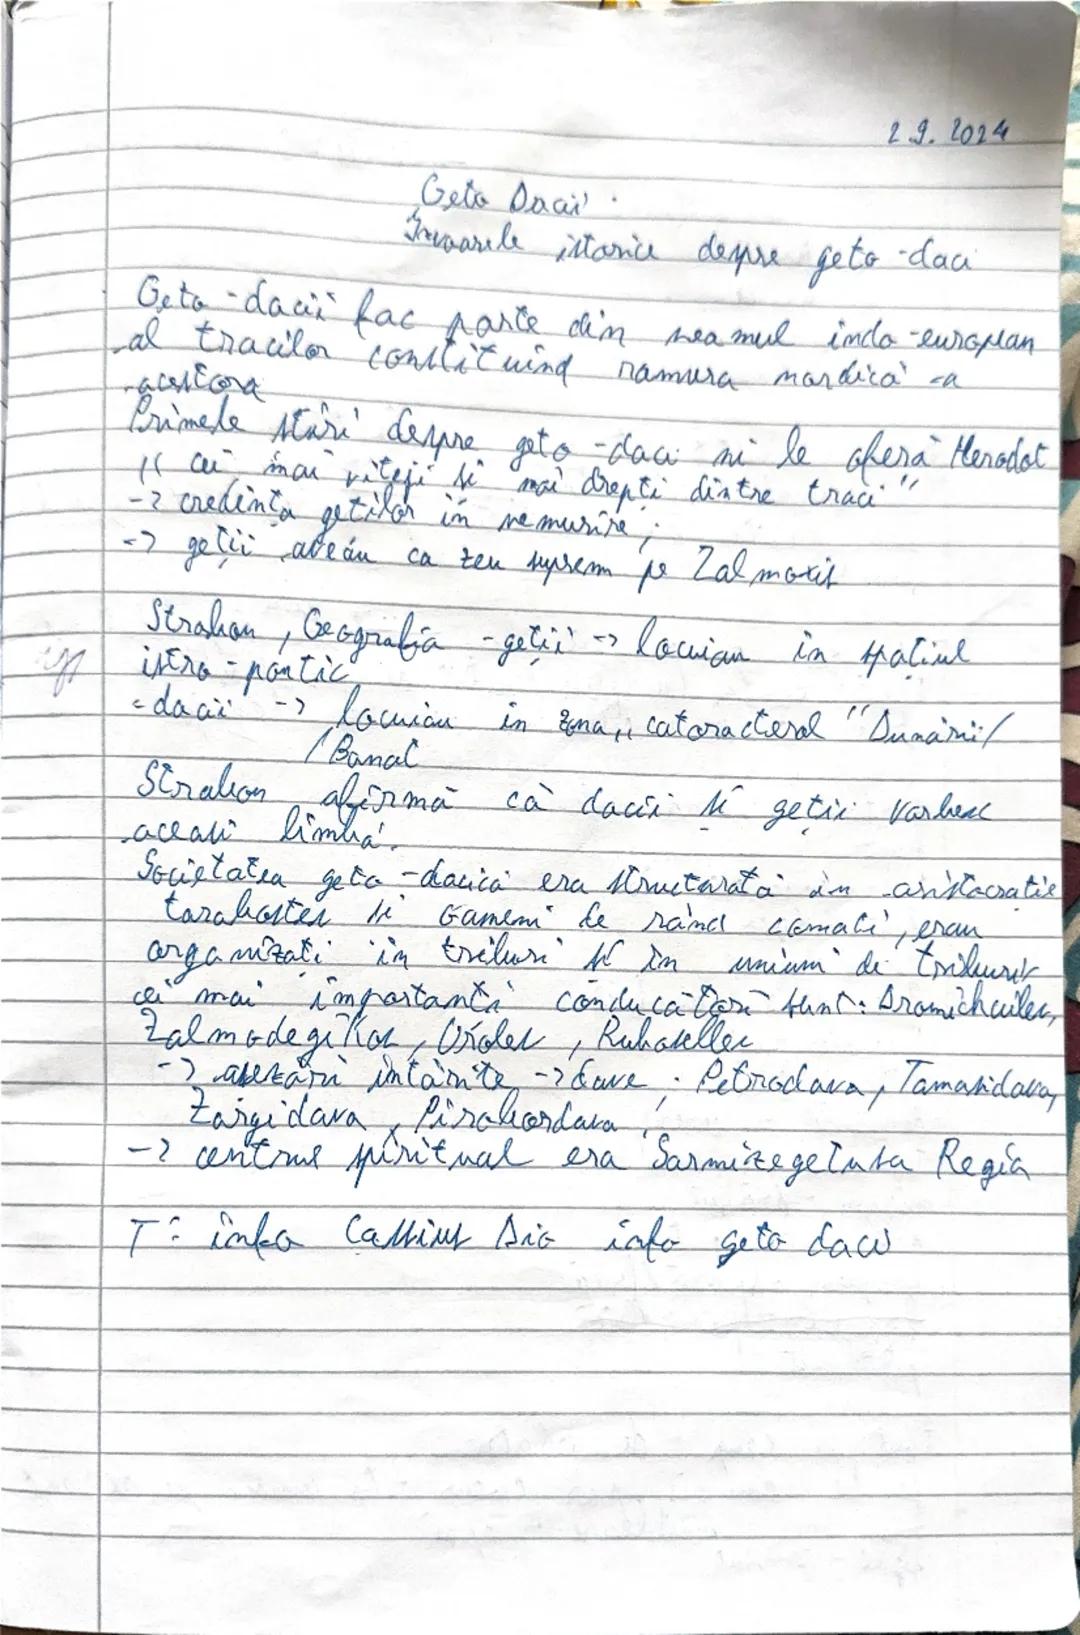 2.9.2024
Geto Dacii
Izvoarele istorice despre geto-daci
Geto-dacii fac parte din neamul indo-european
al tracilor constituind ramura nordică -a
acestora
Primele știri despre geto-daci ni le oferă Herodot
"cei mai viteji și mai drepți dintre traci"
-> credința geților în nemurire;
-> geții aveau ca zeu suprem pe Zalmoxis
Strabon, Geografia -geții -> locuiau în spațiul
istro-pontic
-dacii -> locuiau in zona "cataractelor" Dunării/
/Banat
Strabon afirmă că dacii și geții vorbesc
aceasi limbă.
Societatea geto-dacică era structurată in aristocratie
tarabostes și oameni de rând comati, erau
organizati in triburi și in uniuni de triburi
cei mai importanti conducători sunt: Dromichaites,
Zalmodegikos, Oroles, Rubobostes
-> asezări intărite -> dave: Petrodava, Tamasidava,
Zargidava, Piroboridava;
-> centrul spiritual era Sarmizegetusa Regia
T: info Cassius Dio info geto daci